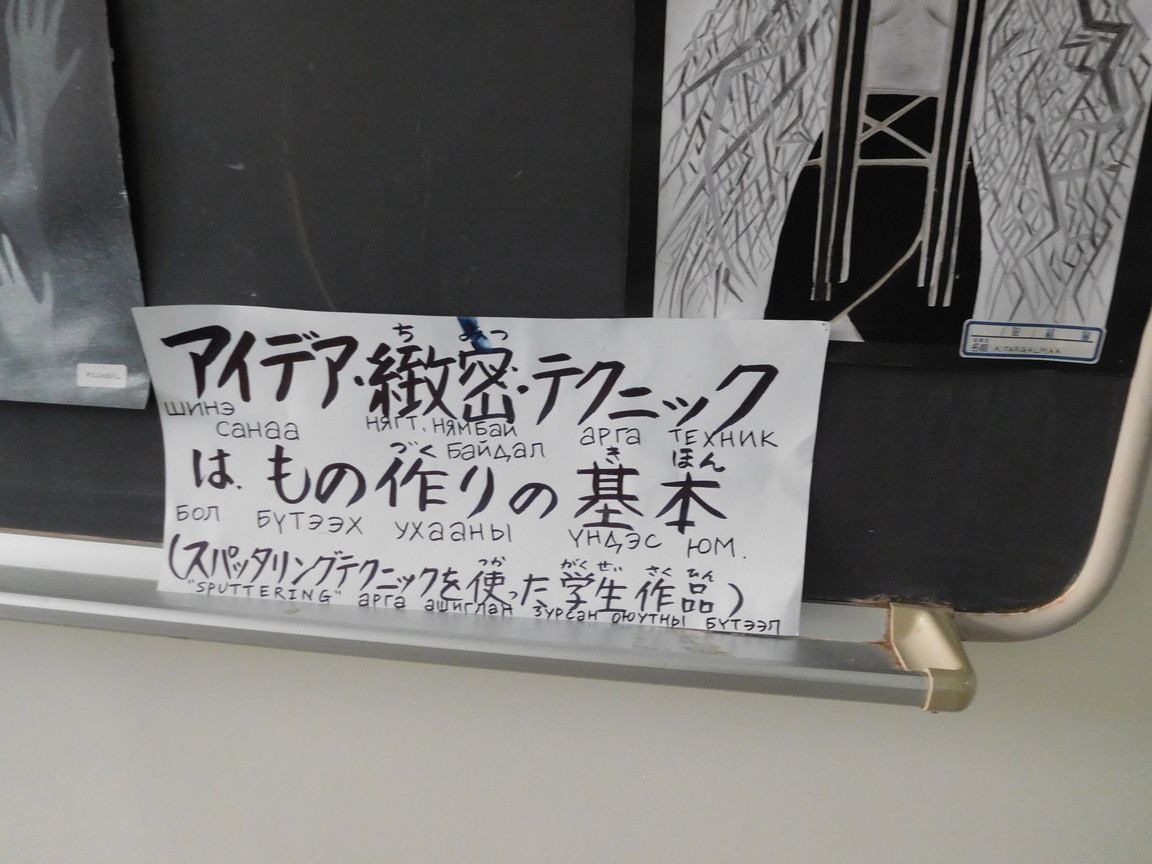 ち みつ
アイデア・緻密・テクニック
ШИНЭ САНАА НЯГТ. НЯМБАЙ БАЙДАЛ АРГА ТЕХНИК
づく き ほん
は、もの作りの基本
БОЛ БҮТЭЭХ УХААНЫ ҮНДЭС ЮМ.
つか がくせい さくひん
(スパッタリングテクニックを使った学生作品)
"SPUTTERING" АРГА АШИГЛАН ЗУРСАН ОЮУТНЫ БҮТЭЭЛ
名前